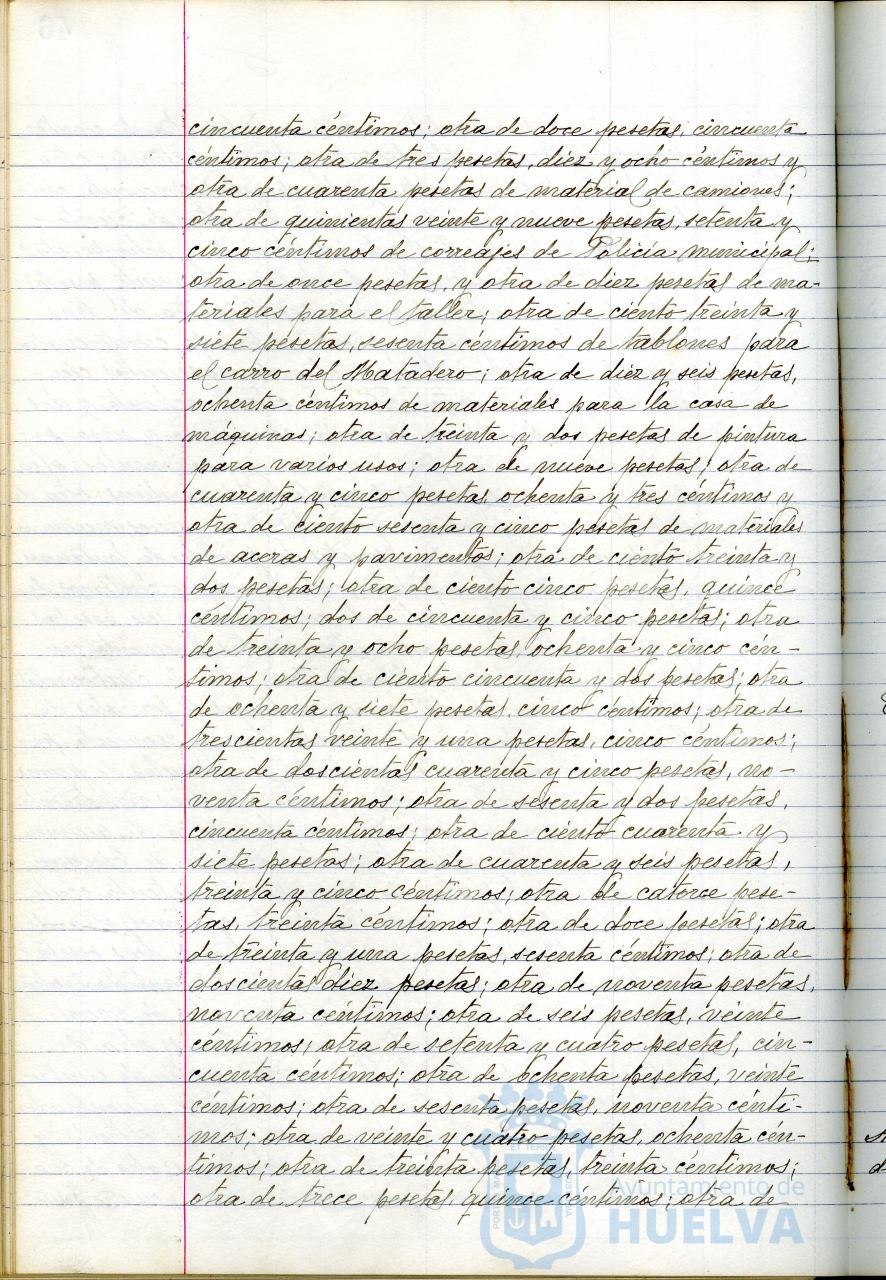 cincuenta céntimos; otra de doce pesetas, cincuenta
céntimos; otra de tres pesetas, diez y ocho céntimos y
otra de cuarenta pesetas de material de camiones;
otra de quinientas veinte y nueve pesetas, setenta y
cinco céntimos de correajes de Policía municipal;
otra de once pesetas, y otra de diez pesetas de ma-
teriales para el taller; otra de ciento treinta y
siete pesetas, sesenta céntimos de tablones para
el carro del Matadero; otra de diez y seis pesetas,
ochenta céntimos de materiales para la casa de
máquinas; otra de treinta y dos pesetas de pintura
para varios usos; otra de nueve pesetas; otra de
cuarenta y cinco pesetas, ochenta y tres céntimos y
otra de ciento sesenta y cinco pesetas de materiales
de aceras y pavimentos; otra de ciento treinta y
dos pesetas; otra de ciento cinco pesetas, quince
céntimos; dos de cincuenta y cinco pesetas; otra
de treinta y ocho pesetas, ochenta y cinco cén-
timos; otra de ciento cincuenta y dos pesetas; otra
de ochenta y siete pesetas, cinco céntimos; otra de
trescientas veinte y una pesetas, cinco céntimos;
otra de doscientas cuarenta y cinco pesetas, no-
venta céntimos; otra de sesenta y dos pesetas,
cincuenta céntimos; otra de ciento cuarenta y
siete pesetas; otra de cuarenta y seis pesetas,
treinta y cinco céntimos; otra de catorce pese-
tas, treinta céntimos; otra de doce pesetas; otra
de treinta y una pesetas, sesenta céntimos; otra de
doscientas diez pesetas; otra de noventa pesetas,
noventa céntimos; otra de seis pesetas, veinte
céntimos; otra de setenta y cuatro pesetas, cin-
cuenta céntimos; otra de ochenta pesetas, veinte
céntimos; otra de sesenta pesetas, noventa cénti-
mos; otra de veinte y cuatro pesetas, ochenta cén-
timos; otra de treinta pesetas, treinta céntimos;
otra de trece pesetas, quince céntimos; otra de
Ayuntamiento de
HUELVA